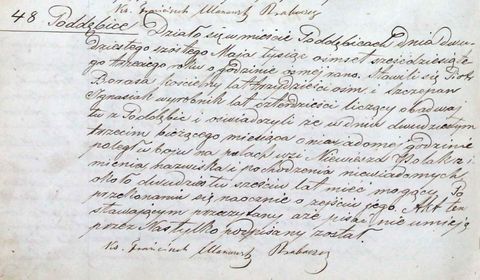 Ks. Franciszek
48 Poddębice. Działo się w mieście Poddębicach dnia dwu-
dziestego szóstego Maja tysiąc ośmset sześćdziesiąte-
go trzeciego roku o godzinie ósmej rano. Stawili się
Borasa kościelny lat trzydzieści ośm i Szczepan
Ignasiak wyrobnik lat czterdzieści liczący obadwaj
tu z Poddębic i oświadczyli że w dniu dwudziestym
trzecim bieżącego miesiąca o niewiadomej godzinie
poległ w boju na polach wsi Niewiesza Polak z i-
mienia nazwiska i pochodzenia niewiadomych
około dwudziestu sześciu lat mieć mogący. Po
przekonaniu się naocznie o zejściu jego. Akt ten
stawającym przeczytany a że pisać nie umieją
przez Nas tylko podpisany został.
Ks. Franciszek